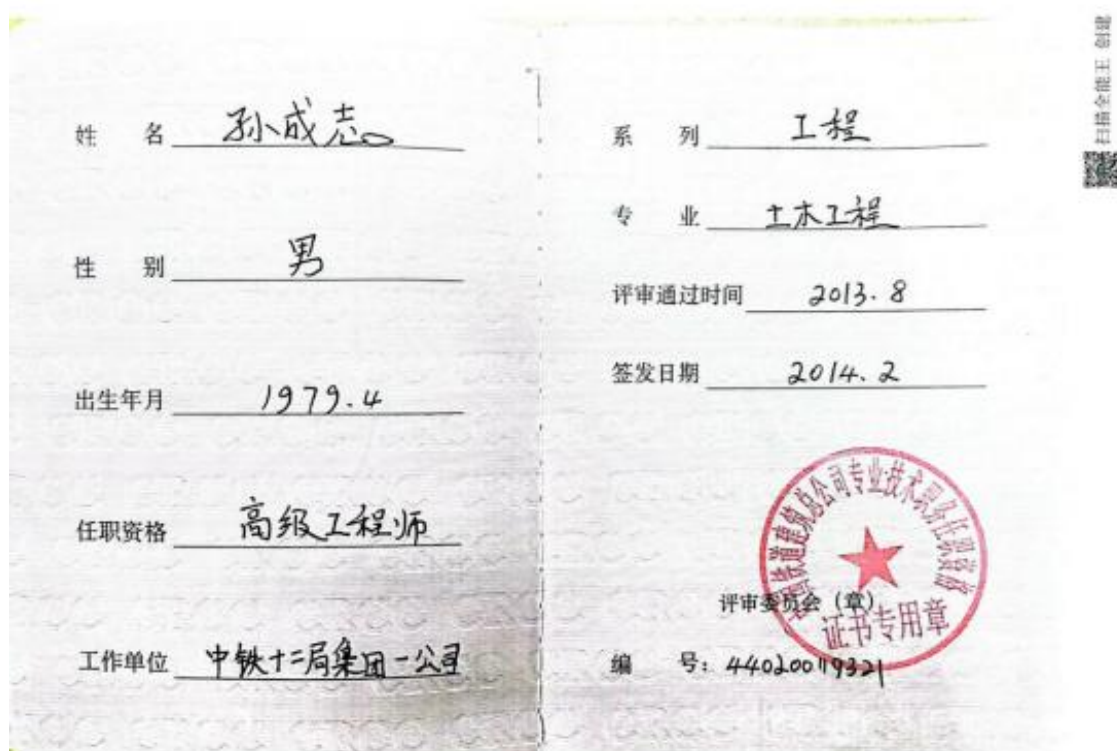 姓 名 孙成志
性 别 男
出生年月 1979.4
任职资格 高级工程师
工作单位 中铁十二局集团一公司
系 列 工程
专 业 土木工程
评审通过时间 2013.8
签发日期 2014.2
中国铁道建筑总公司专业技术职务任职资格
评审委员会(章)
证书专用章
编 号: 44020019321
扫描全能王 创建